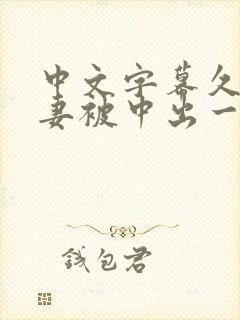 中文字幕久
妻被中出一
钱包君